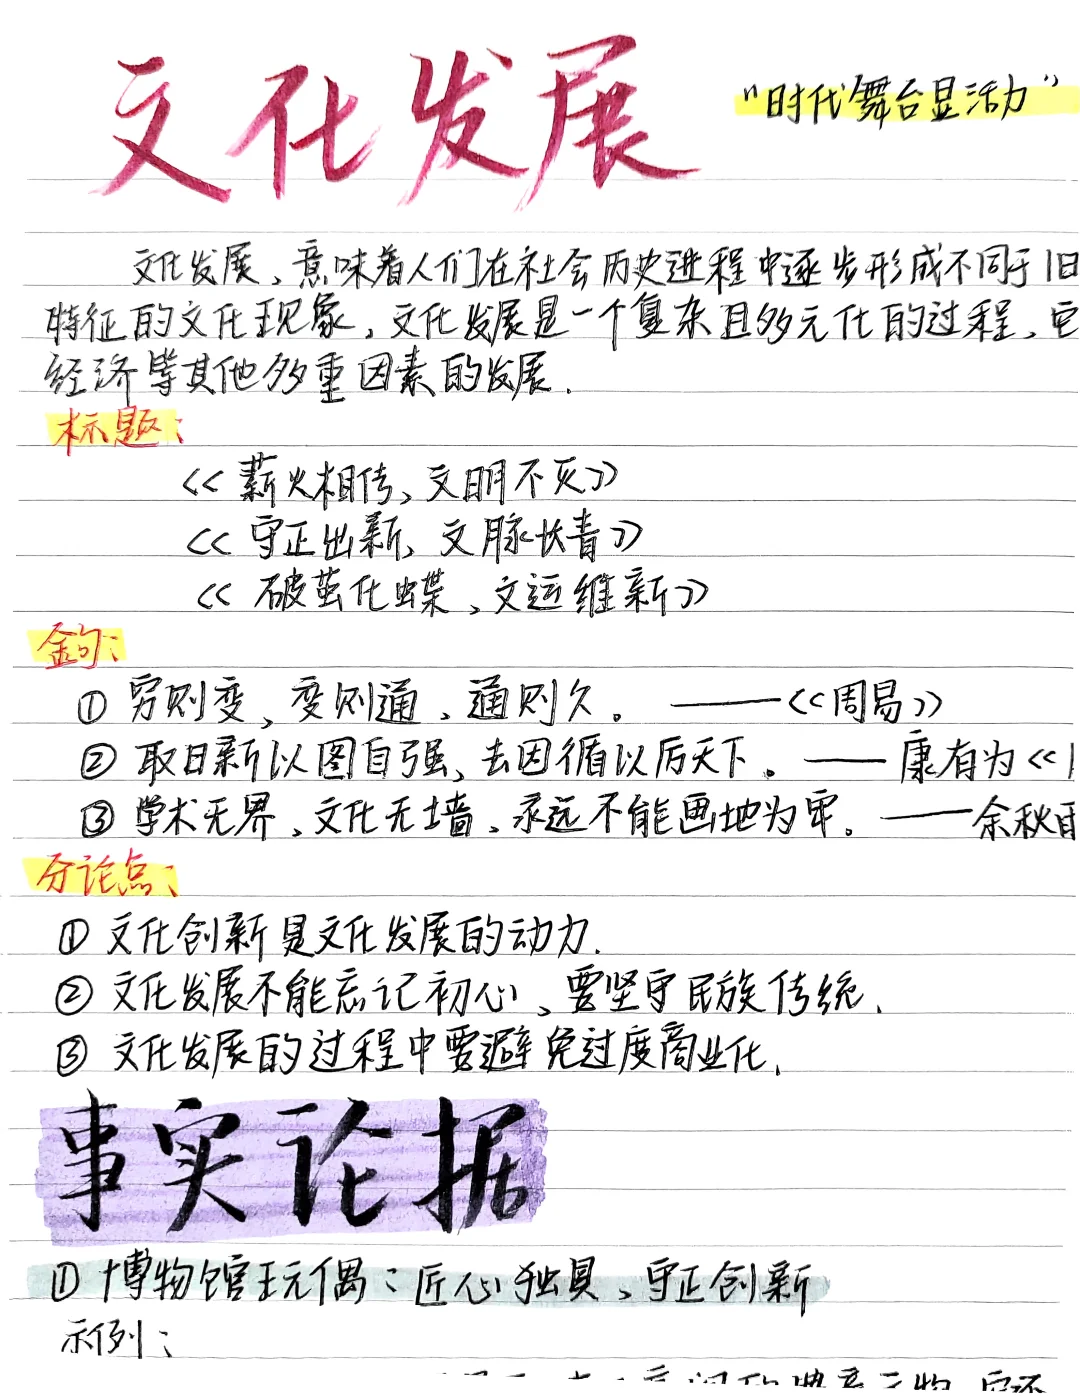 文化发展
“时代舞台显活力”
文化发展,意味着人们在社会历史进程中逐步形成不同于旧
特征的文化现象,文化发展是一个复杂且多元化的过程,它
经济等其他多重因素的发展.
标题:
<<薪火相传,文明不灭>>
<<守正出新,文脉长青>>
<<破茧化蝶,文运维新>>
金句:
① 穷则变,变则通,通则久。 ——<<周易>>
② 取日新以图自强,去因循以厉天下。——康有为<<
③ 学术无界,文化无墙,永远不能画地为牢。——余秋雨
分论点:
① 文化创新是文化发展的动力.
② 文化发展不能忘记初心,要坚守民族传统.
③ 文化发展的过程中要避免过度商业化.
事实论据
① 博物馆玩偶:匠心独具,守正创新
示例: